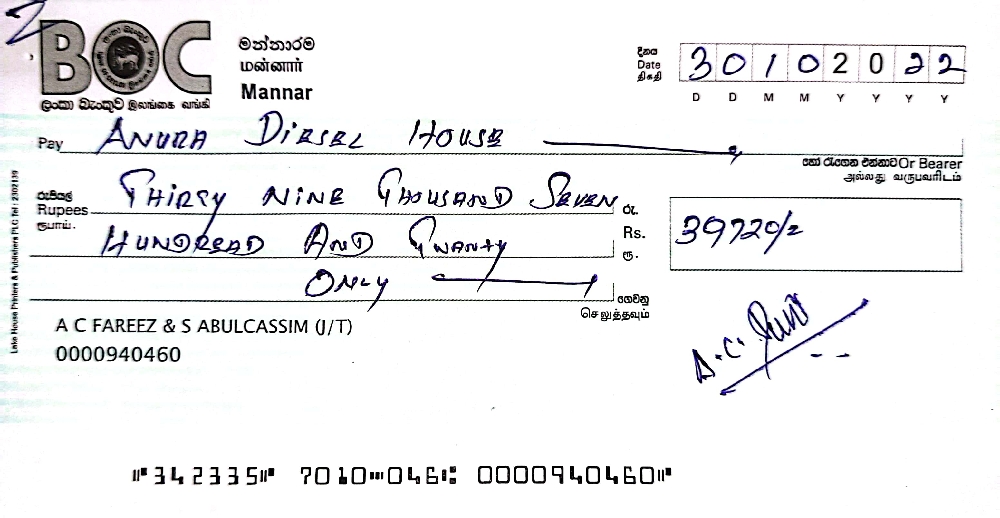 BOC
ලංකා බැංකුව இலங்கை வங்கி
මන්නාරම
மன்னார்
Mannar
දිනය
Date
திகதி
3 0 1 0 2 0 2 2
D D M M Y Y Y Y
Pay ANURA DIESEL HOUSE
හෝ රැගෙන එන්නාට Or Bearer
அல்லது வருபவரிடம்
රුපියල්
Rupees
ரூபாய்.
THIRTY NINE THOUSAND SEVEN
HUNDREAD AND TWANTY
ONLY
රු.
Rs.
ரூ.
39720/=
ගෙවනු
செலுத்தவும்
A C FAREEZ & S ABULCASSIM (J/T)
0000940460
A.C.
Lake House Printers & Publishers PLC Tel : 2302139
⑈342335⑈ 7010⑉046⑆ 0000940460⑈